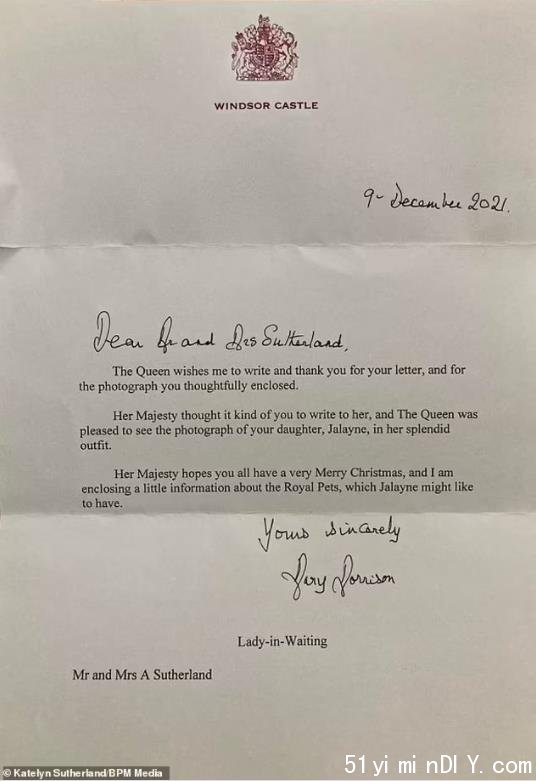 WINDSOR CASTLE
9th December 2021.
Dear Mr and Mrs Sutherland,
The Queen wishes me to write and thank you for your letter, and for
the photograph you thoughtfully enclosed.
Her Majesty thought it kind of you to write to her, and The Queen was
pleased to see the photograph of your daughter, Jalayne, in her splendid
outfit.
Her Majesty hopes you all have a very Merry Christmas, and I am
enclosing a little information about the Royal Pets, which Jalayne might like
to have.
Yours sincerely
Mary Morrison
Lady-in-Waiting
Mr and Mrs A Sutherland
© Katelyn Sutherland/BPM Media
51yiminDIY.com